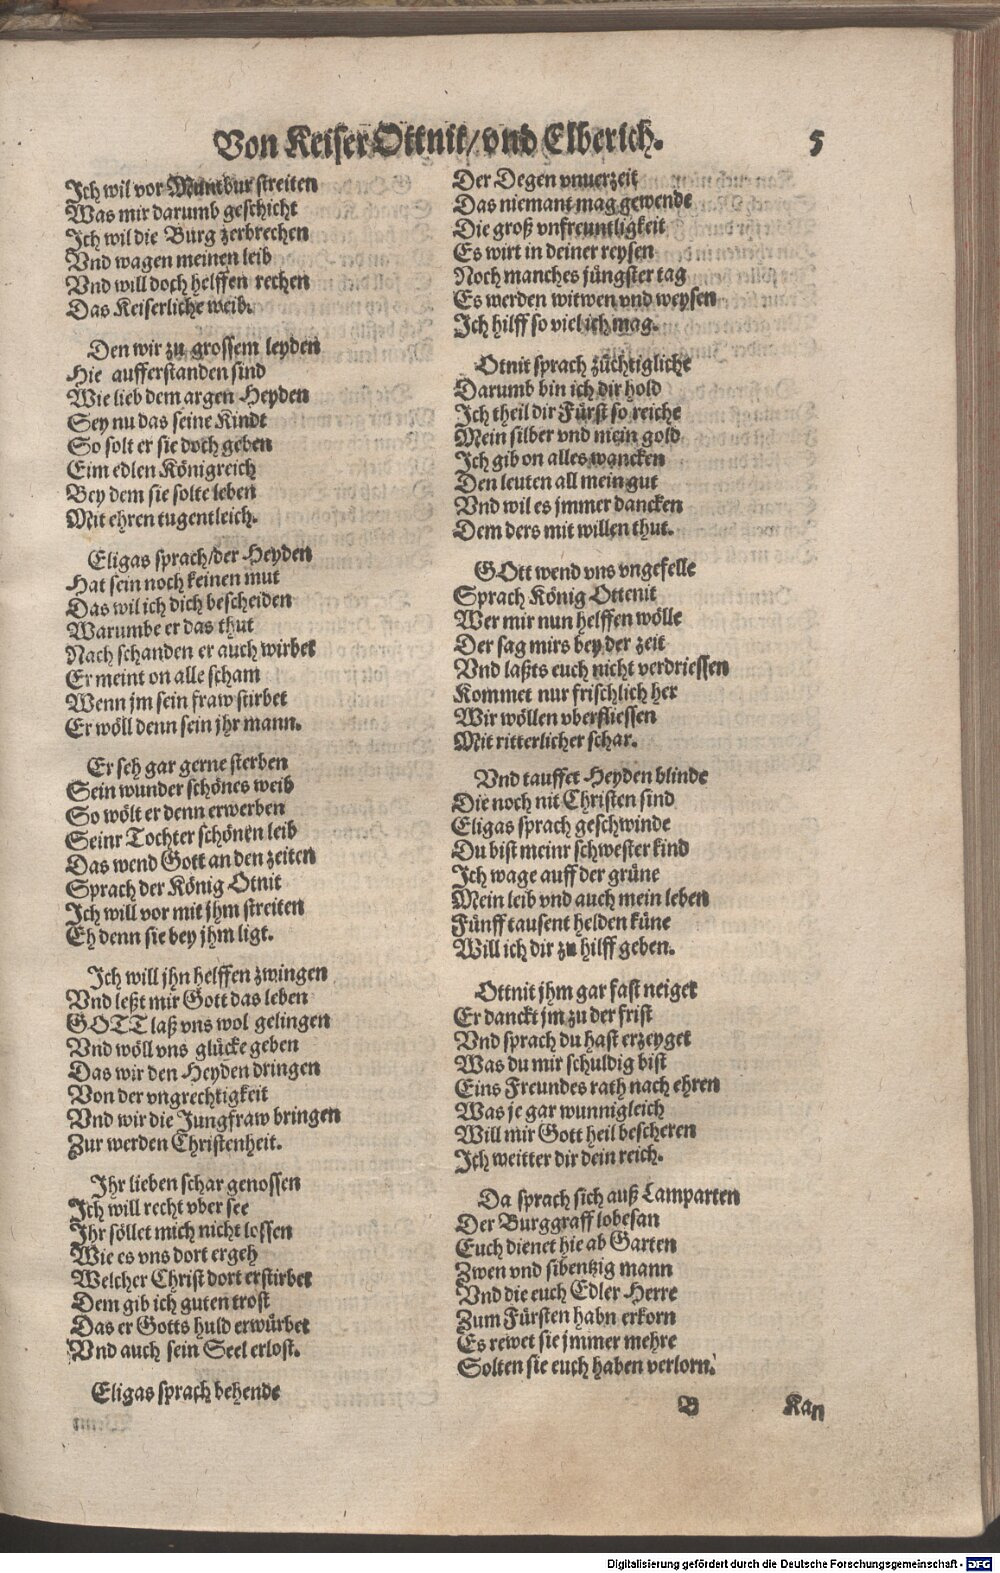 Von Keiser Ottnit/ vnd Elberich. 5
Jch wil vor Muntbur streiten
Was mir darumb geschicht
Jch wil die Burg zerbrechen
Vnd wagen meinen leib
Vnd will doch helffen rechen
Das Keiserliche weib.
Den wir zu grossem leyden
Hie aufferstanden sind
Wie lieb dem argen Heyden
Sey nu das seine Kindt
So solt er sie doch geben
Eim edlen Königreich
Bey dem sie solte leben
Mit ehren tugentleich.
Eligas sprach/der Heyden
Hat sein noch keinen mut
Das wil ich dich bescheiden
Warumbe er das thut
Nach schanden er auch wirbet
Er meint on alle scham
Wenn jm sein fraw stirbet
Er wöll denn sein jhr mann.
Er seh gar gerne sterben
Sein wunder schönes weib
So wölt er denn erwerben
Seinr Tochter schönen leib
Das wend Gott an den zeiten
Sprach der König Otnit
Jch will vor mit jhm streiten
Eh denn sie bey jhm ligt.
Jch will jhn helffen zwingen
Vnd leßt mir Gott das leben
GOTT laß vns wol gelingen
Vnd wöll vns glücke geben
Das wir den Heyden dringen
Von der vngrechtigkeit
Vnd wir die Jungfraw bringen
Zur werden Christenheit.
Jhr lieben schar genossen
Jch will recht vber see
Jhr söllet mich nicht lossen
Wie es vns dort ergeh
Welcher Christ dort erstirbet
Dem gib ich guten trost
Das er Gotts huld erwürbet
Vnd auch sein Seel erlost.
Eligas sprach behende
Der Degen vnuerzeit
Das niemant mag gewende
Die groß vnfreuntligkeit
Es wirt in deiner reysen
Noch manches jüngster tag
Es werden witwen vnd weysen
Jch hilff so viel ich mag.
Otnit sprach züchtigliche
Darumb bin ich dir hold
Jch theil dir Fürst so reiche
Mein silber vnd mein gold
Jch gib on alles wancken
Den leuten all mein gut
Vnd wil es jmmer dancken
Dem ders mit willen thut.
GOtt wend vns vngefelle
Sprach König Ottenit
Wer mir nun helffen wölle
Der sag mirs bey der zeit
Vnd laßts euch nicht verdriessen
Kommet nur frischlich her
Wir wöllen vberfliessen
Mit ritterlicher schar.
Vnd tauffet Heyden blinde
Die noch nit Christen sind
Eligas sprach geschwinde
Du bist meinr schwester kind
Jch wage auff der grüne
Mein leib vnd auch mein leben
Fünff tausent helden küne
Will ich dir zu hilff geben.
Ottnit jhm gar fast neiget
Er danckt jm zu der frist
Vnd sprach du hast erzeyget
Was du mir schuldig bist
Eins Freundes rath nach ehren
Was je gar wunnigleich
Will mir Gott heil bescheren
Jch weitter dir dein reich.
Da sprach sich auß Lamparten
Der Burggraff lobesan
Euch dienet hie ab Garten
Zwen vnd sibentzig mann
Vnd die euch Edler Herre
Zum Fürsten habn erkorn
Es rewet sie jmmer mehre
Solten sie euch haben verlorn.
B Kan
Digitalisierung gefördert durch die Deutsche Forschungsgemeinschaft - DFG